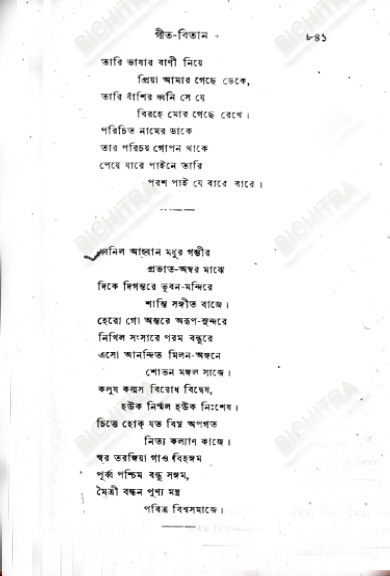 গীত-বিতান ৮৪১
তারি ভাষার বাণী নিয়ে
প্রিয়া আমার গেছে ডেকে,
তারি বাঁশির ধ্বনি সে যে
বিরহে মোর গেছে রেখে।
পরিচিত নামের ডাকে
তার পরিচয় গোপন থাকে
পেয়ে যারে পাইনে তারি
পরশ পাই যে বারে বারে।
ধ্বনিল আহ্বান মধুর গম্ভীর
প্রভাত-অম্বর মাঝে
দিকে দিগন্তরে ভুবন-মন্দিরে
শান্তি সঙ্গীত বাজে।
হেরো গো অন্তরে অরূপ-সুন্দরে
নিখিল সংসারে পরম বন্ধুরে
এসো আনন্দিত মিলন-অঙ্গনে
শোভন মঙ্গল সাজে।
কলুষ কল্মষ বিরোধ বিদ্বেষ,
হউক নির্ম্মল হউক নিঃশেষ।
চিত্তে হোক্ যত বিঘ্ন অপগত
নিত্য কল্যাণ কাজে।
স্বর তরঙ্গিয়া গাও বিহঙ্গম
পূর্ব্ব পশ্চিম বন্ধু সঙ্গম,
মৈত্রী বন্ধন পুণ্য মন্ত্র
পবিত্র বিশ্বসমাজে।
BICHITRA